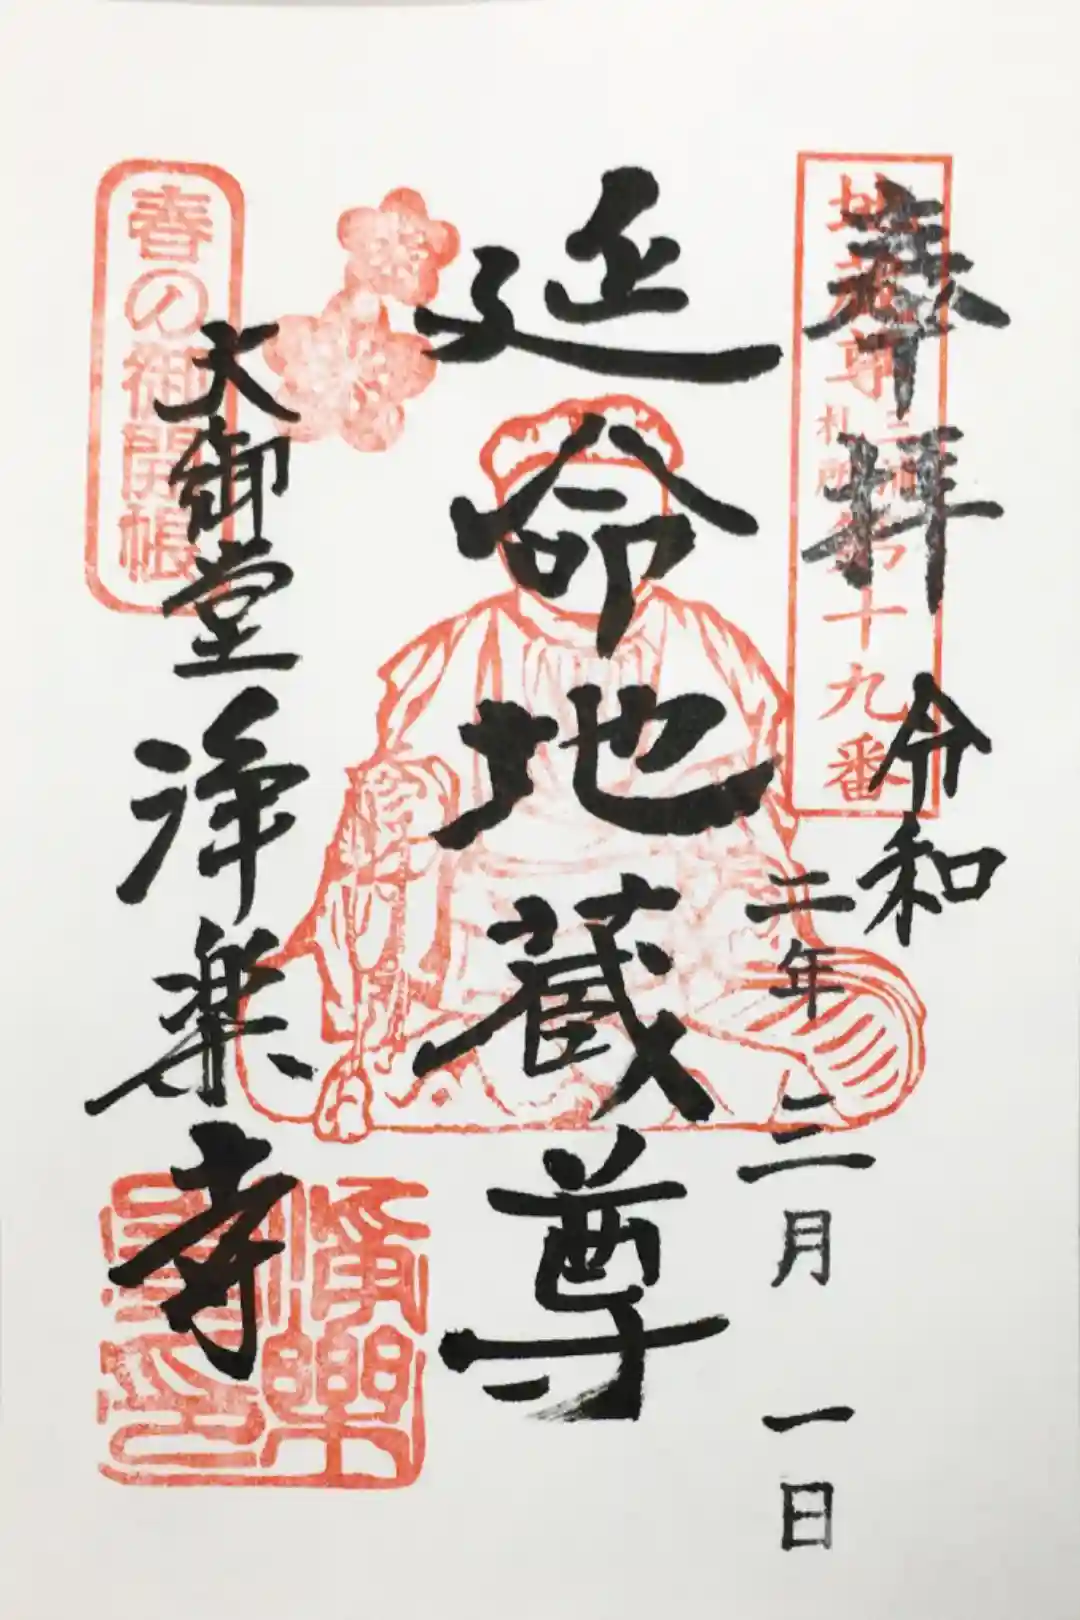 奉拝
地蔵尊
三浦
札所
第十九番
令和
二年
二月
一日
延命地蔵尊
春の御開帳
大御堂
浄楽寺